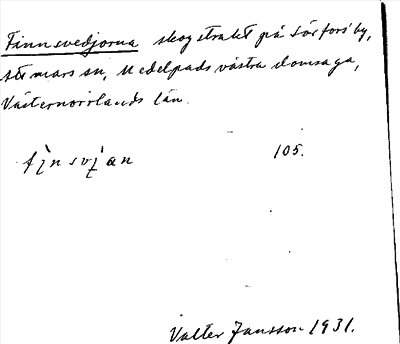 Finnsvedjorna skogstrakt på Sörfors by,
Attmars sn, Medelpads västra domsaga,
Västernorrlands län.
fi̯nsvi̯an 105.
Valter Jansson 1931.